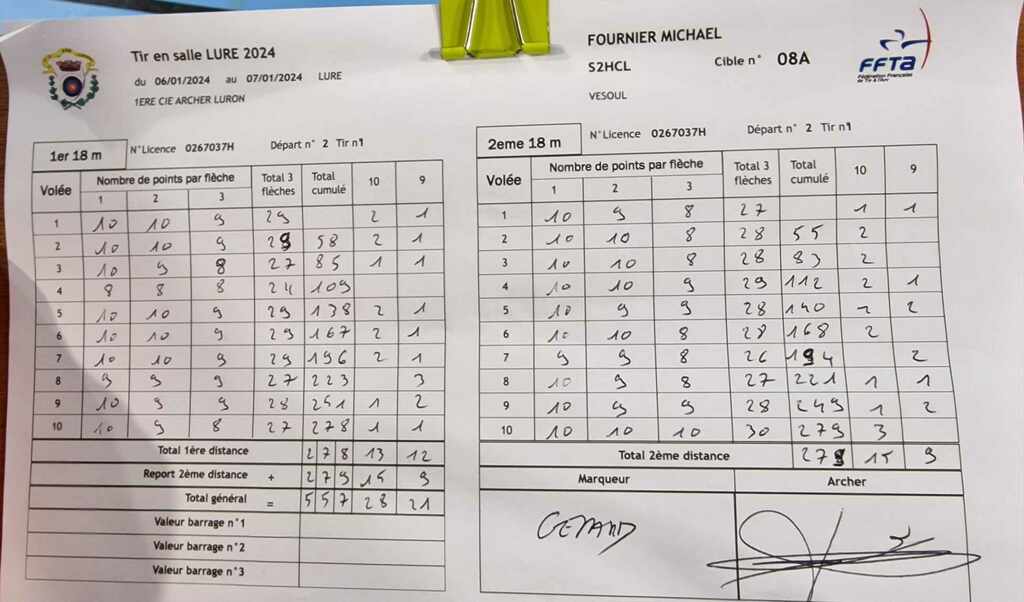 Tir en salle LURE 2024
du 06/01/2024 au 07/01/2024 LURE
1ERE CIE ARCHER LURON
FOURNIER MICHAEL
S2HCL Cible n° 08A
VESOUL
FFTA
Fédération Française
de Tir à l'Arc
1er 18 m N°Licence 0267037H Départ n° 2 Tir n°1
Volée Nombre de points par flèche Total 3 flèches Total cumulé 10 9
1 2 3
1 10 10 9 29 2 1
2 10 10 9 29 58 2 1
3 10 9 8 27 85 1 1
4 8 8 8 24 109
5 10 10 9 29 138 2 1
6 10 10 9 29 167 2 1
7 10 10 9 29 196 2 1
8 9 9 9 27 223 3
9 10 9 9 28 251 1 2
10 10 9 8 27 278 1 1
Total 1ère distance 278 13 12
Report 2ème distance + 279 15 9
Total général = 557 28 21
Valeur barrage n°1
Valeur barrage n°2
Valeur barrage n°3
2eme 18 m N°Licence 0267037H Départ n° 2 Tir n°1
Volée Nombre de points par flèche Total 3 flèches Total cumulé 10 9
1 2 3
1 10 9 8 27 1 1
2 10 10 8 28 55 2
3 10 10 8 28 83 2
4 10 10 9 29 112 2 1
5 10 9 9 28 140 2
6 10 10 8 28 168 2
7 9 9 8 26 194 2
8 10 9 8 27 221 1 1
9 10 9 9 28 249 1 2
10 10 10 10 30 279 3
Total 2ème distance 279 15 9
Marqueur Archer